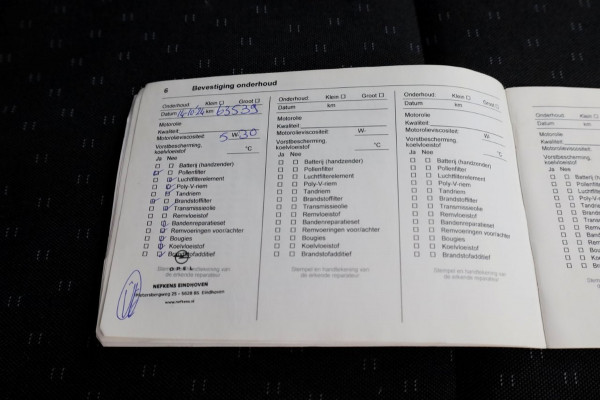 6 Bevestiging onderhoud
Onderhoud: Klein ☐ Groot ☐
Datum 16-10-'24 km 63539
Motorolie
Kwaliteit
Motorolieviscositeit: 5 W- 30
Vorstbescherming,
koelvloeistof °C
Ja Nee
Batterij (handzender)
Pollenfilter
Luchtfilterelement
Poly-V-riem
Tandriem
Brandstoffilter
Transmissieolie
Remvloeistof
Bandenreparatieset
Remvoeringen voor/achter
Bougies
Koelvloeistof
Brandstofadditief
Stempel en handtekening van
de erkende reparateur
OPEL
NEFKENS EINDHOVEN
www.nefkens.nl
Onderhoud: Klein ☐ Groot ☐
Datum km
Motorolie
Kwaliteit
Motorolieviscositeit: W-
Vorstbescherming,
koelvloeistof °C
Ja Nee
Batterij (handzender)
Pollenfilter
Luchtfilterelement
Poly-V-riem
Tandriem
Brandstoffilter
Transmissieolie
Remvloeistof
Bandenreparatieset
Remvoeringen voor/achter
Bougies
Koelvloeistof
Brandstofadditief
Stempel en handtekening van
de erkende reparateur
Onderhoud: Klein ☐ Groot ☐
Datum km
Motorolie
Kwaliteit
Motorolieviscositeit: W-
Vorstbescherming,
koelvloeistof °C
Ja Nee
Batterij (handzender)
Pollenfilter
Luchtfilterelement
Poly-V-riem
Tandriem
Brandstoffilter
Transmissieolie
Remvloeistof
Bandenreparatieset
Remvoeringen voor/achter
Bougies
Koelvloeistof
Brandstofadditief
Stempel en handtekening van
de erkende reparateur
Onderhoud:
Datum
Motorolie
Kwaliteit
Ja Nee